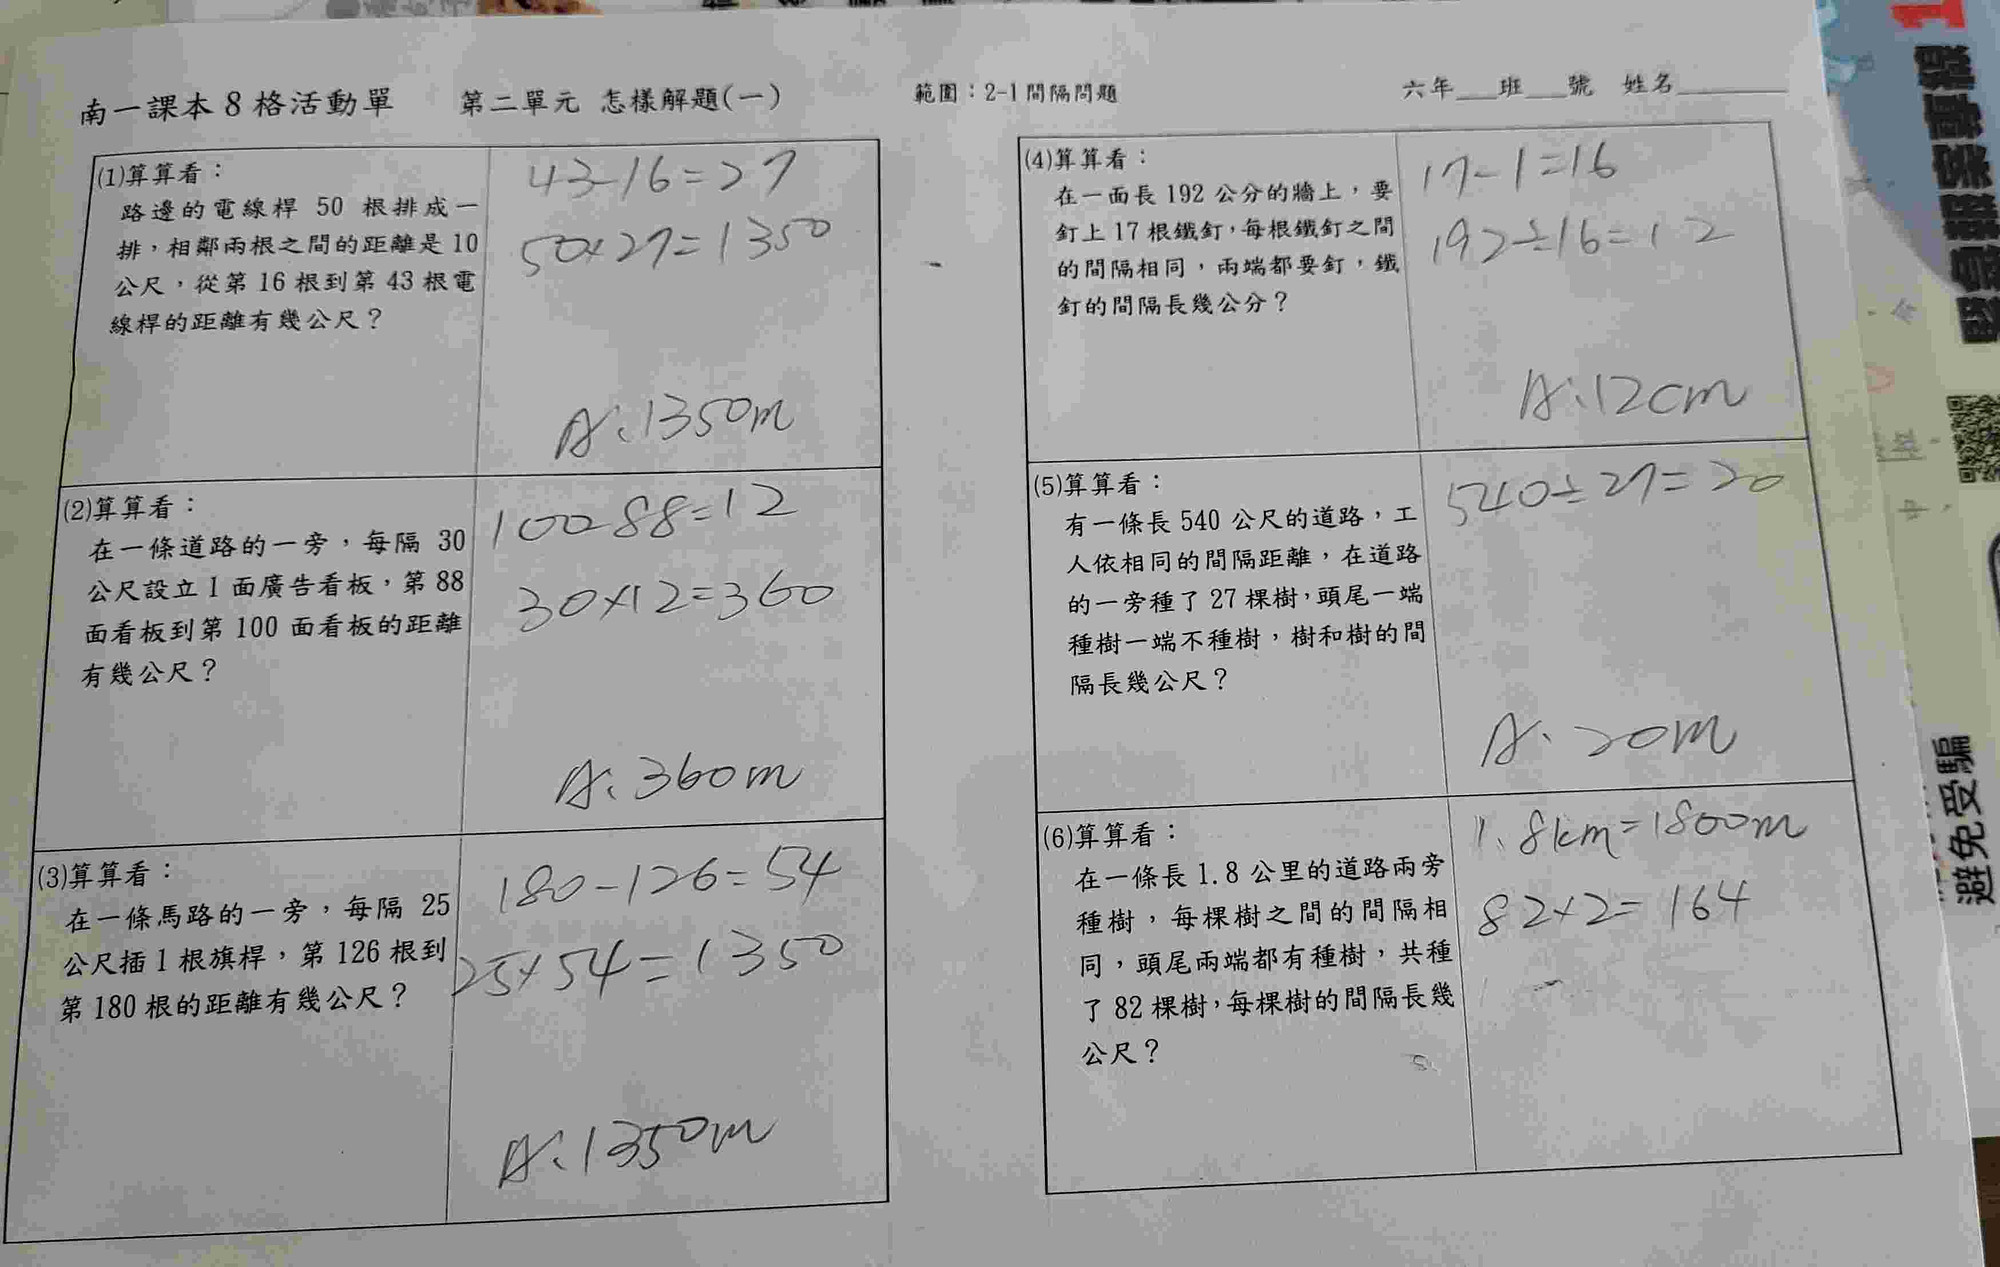 南一課本8格活動單 第二單元 怎樣解題(一) 範圍：2-1間隔問題 六年___班___號 姓名________
(1)算算看：
路邊的電線桿 50 根排成一
排，相鄰兩根之間的距離是10
公尺，從第16根到第43根電
線桿的距離有幾公尺？
43-16=27
50×27=1350
A:1350m
(2)算算看：
在一條道路的一旁，每隔 30
公尺設立1面廣告看板，第88
面看板到第100面看板的距離
有幾公尺？
100-88=12
30×12=360
A:360m
(3)算算看：
在一條馬路的一旁，每隔 25
公尺插1根旗桿，第126根到
第180根的距離有幾公尺？
180-126=54
25×54=1350
A:1350m
(4)算算看：
在一面長192公分的牆上，要
釘上17根鐵釘，每根鐵釘之間
的間隔相同，兩端都要釘，鐵
釘的間隔長幾公分？
17-1=16
192÷16=12
A:12cm
(5)算算看：
有一條長540公尺的道路，工
人依相同的間隔距離，在道路
的一旁種了27棵樹，頭尾一端
種樹一端不種樹，樹和樹的間
隔長幾公尺？
540÷27=20
A:20m
(6)算算看：
在一條長1.8公里的道路兩旁
種樹，每棵樹之間的間隔相
同，頭尾兩端都有種樹，共種
了82棵樹，每棵樹的間隔長幾
公尺？
1.8km=1800m
82×2=164
避免受騙